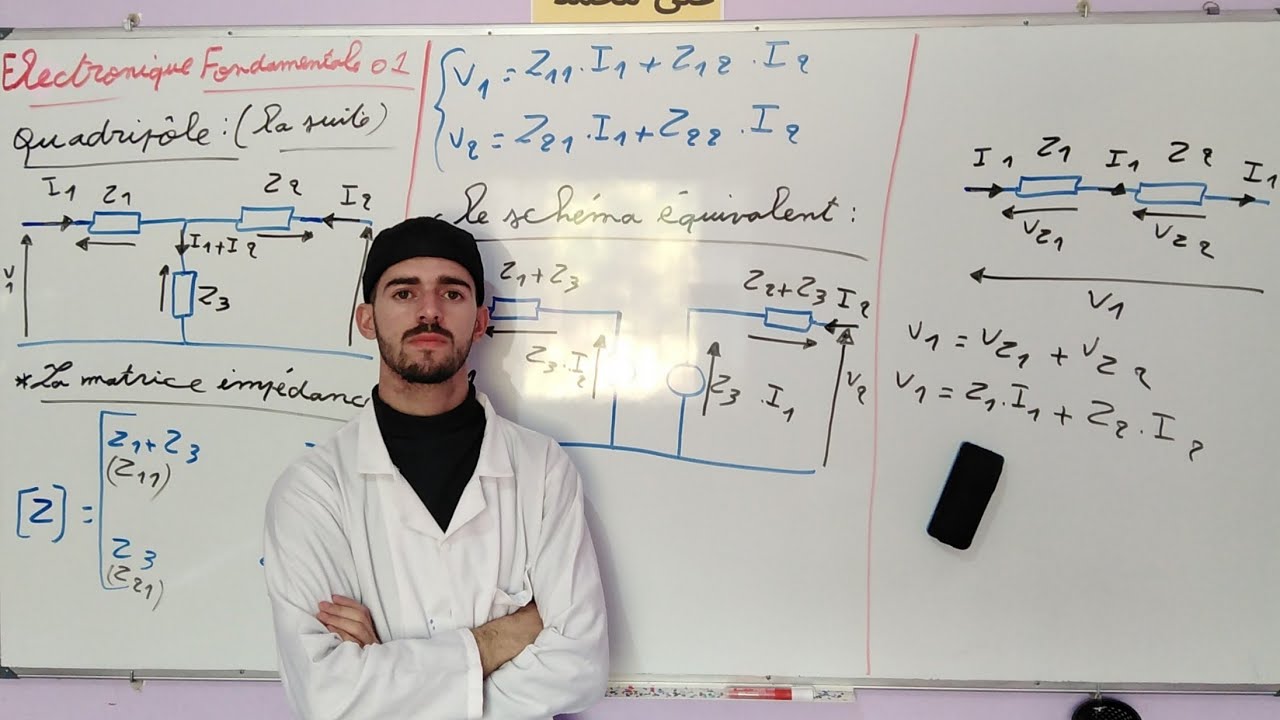 Electronique Fondamentale 01
Quadripôle : (la suite)
I1 Z1 Z2 I2
I1+I2
V1
Z3
*La matrice impédanc
[Z] =
Z1+Z3
(Z11)
Z3
(Z21)
V1 = Z11.I1 + Z12 . I2
V2 = Z21.I1 + Z22 . I2
le schéma équivalent :
Z1+Z3
Z2+Z3 I2
Z3.I2
Z3 .I1
V2
I1 Z1 I1 Z2 I1
VZ1 VZ2
V1
V1 = VZ1 + VZ2
V1 = Z1.I1 + Z2.I2